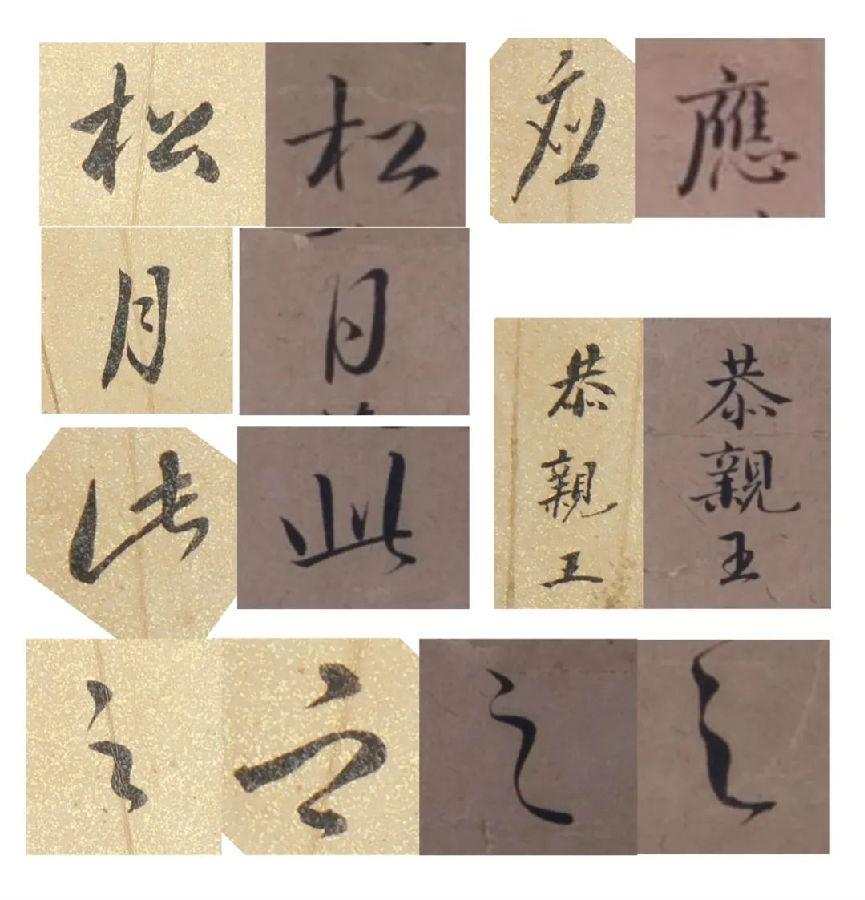 松 松
應 應
月 月
恭親王 恭親王
此 此
之 之 之 之